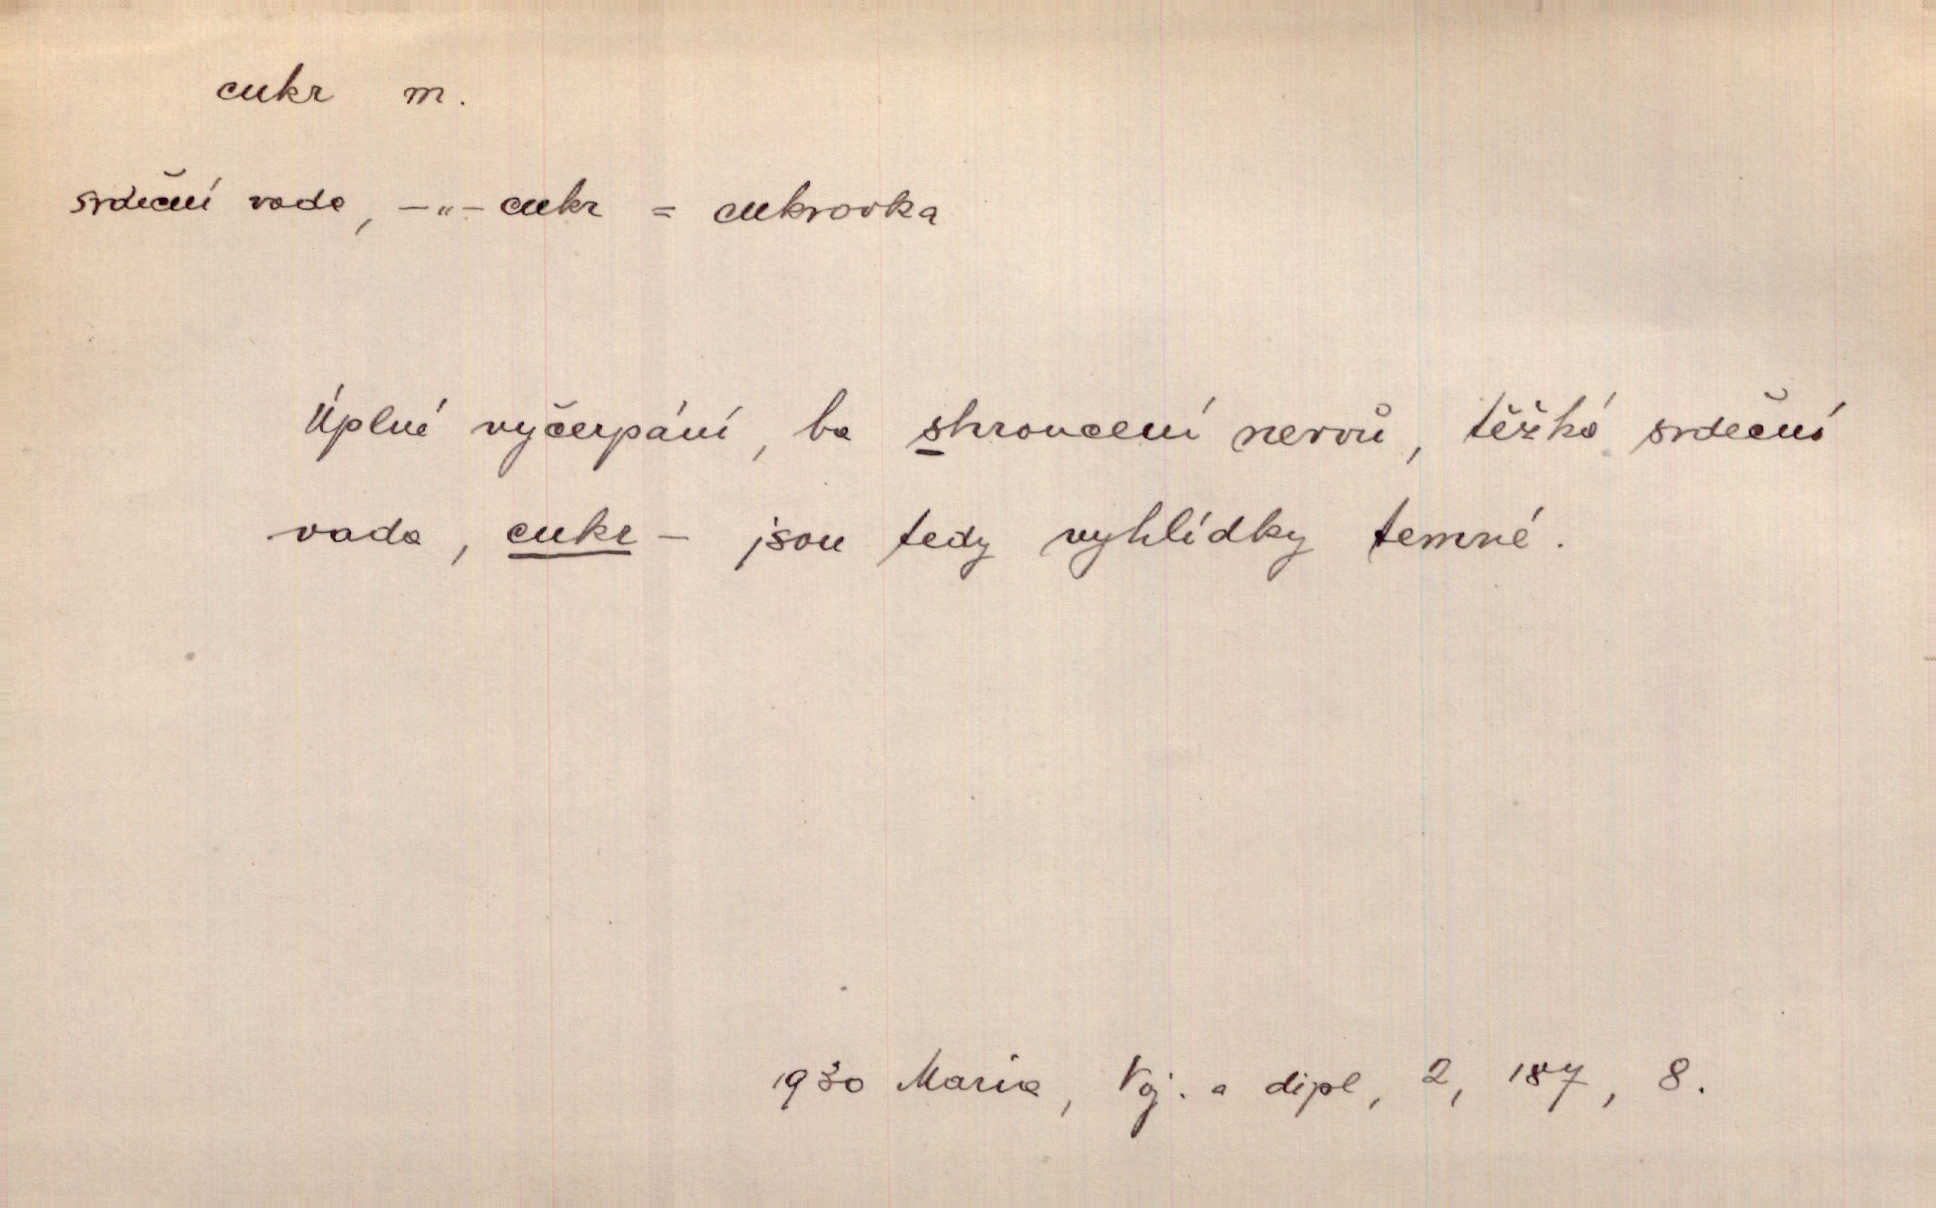 cukr m.
srdeční vada, —"— cukr = cukrovka
Úplné vyčerpání, ba shroucení nervů, těžká srdeční
vada, cukr – jsou tedy vyhlídky temné.
1930 Maria, Voj. a dipl, 2, 187, 8.